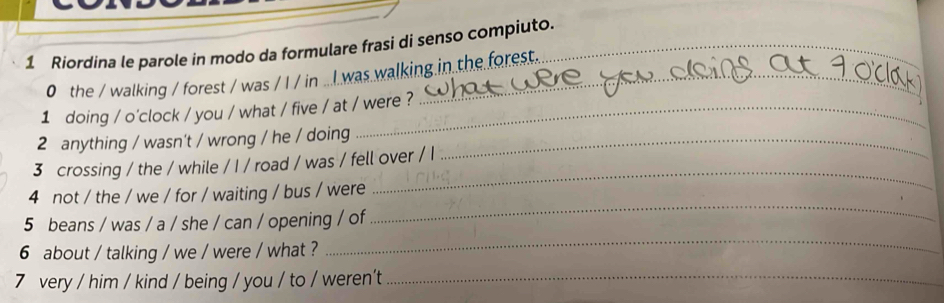 1 Riordina le parole in modo da formulare frasi di senso compiuto.
0 the / walking / forest / was / I / in I was walking in the forest.
1 doing / o'clock / you / what / five / at / were ? What were you doing at 9 o'clok
2 anything / wasn't / wrong / he / doing
3 crossing / the / while / I / road / was / fell over / I
4 not / the / we / for / waiting / bus / were
5 beans / was / a / she / can / opening / of
6 about / talking / we / were / what ?
7 very / him / kind / being / you / to / weren't